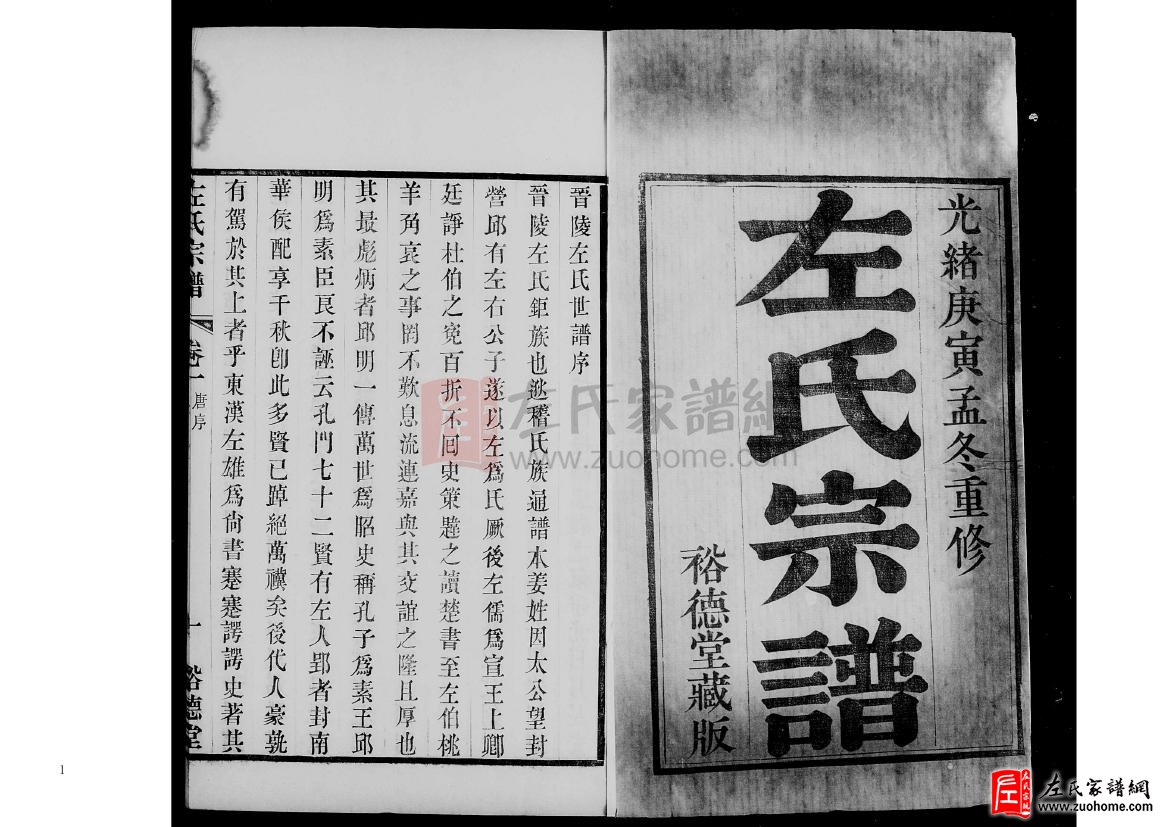 光緒庚寅孟冬重修
左氏宗譜
裕德堂藏版
晉陵左氏世譜序
晉陵左氏鉅族也逖稽氏族通譜本姜姓因太公望封
營邱有左右公子遂以左爲氏厥後左儒爲宣王上卿
廷諍杜伯之寃百折不回史策韙之讀楚書至左伯桃
羊角哀之事罔不歎息流連嘉與其交誼之隆且厚也
其最彪炳者邱明一傳萬世爲昭史稱孔子爲素王邱
明爲素臣良不誣云孔門七十二賢有左人郢者封南
華侯配享千秋卽此多賢已踔絕萬禩矣後代人豪孰
有駕於其上者乎東漢左雄爲尙書蹇蹇諤諤史著其
左氏宗譜
卷一
唐序
一
裕德堂
左氏家譜網
www.zuohome.com
1
左氏家譜網
www.zuohome.com